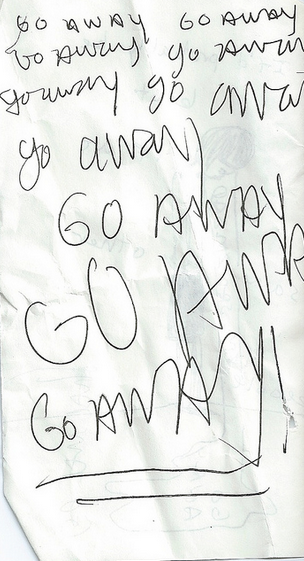 GO AWAY GO AWAY
GO AWAY go AWAY
go away go away
go away
GO AWAY
GO AWA
GO AWAY!